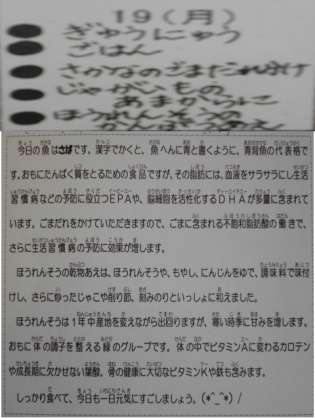 19(月)
ぎゅうにゅう
ごはん
さかなのごまだれかけ
じゃがいもの
あまからに
ほうれんそうの
今日の魚はさばです。漢字でかくと、魚へんに青と書くように、青背魚の代表格で
す。おもにたんぱく質をとるための食品ですが、その脂肪には、血液をサラサラにし生活
習慣病などの予防に役立つEPAや、脳細胞を活性化するDHAが多量に含まれて
います。ごまだれをかけていただきますので、ごまに含まれる不飽和脂肪酸の働きで、
さらに生活習慣病の予防に効果が増します。
ほうれんそうの乾物あえは、ほうれんそうや、もやし、にんじんをゆで、調味料で味付
けし、さらにゆったじゃこや削り節、刻みのりといっしょに和えました。
ほうれんそうは1年中産地を変えながら出回りますが、寒い時季に甘みを増します。
おもに体の調子を整える緑のグループです。体の中でビタミンAに変わるカロテン
や成長期に欠かせない葉酸、骨の健康に大切なビタミンKや鉄も含みます。
しっかり食べて、今日も一日元気にすごしましょう。(*^_^*)/